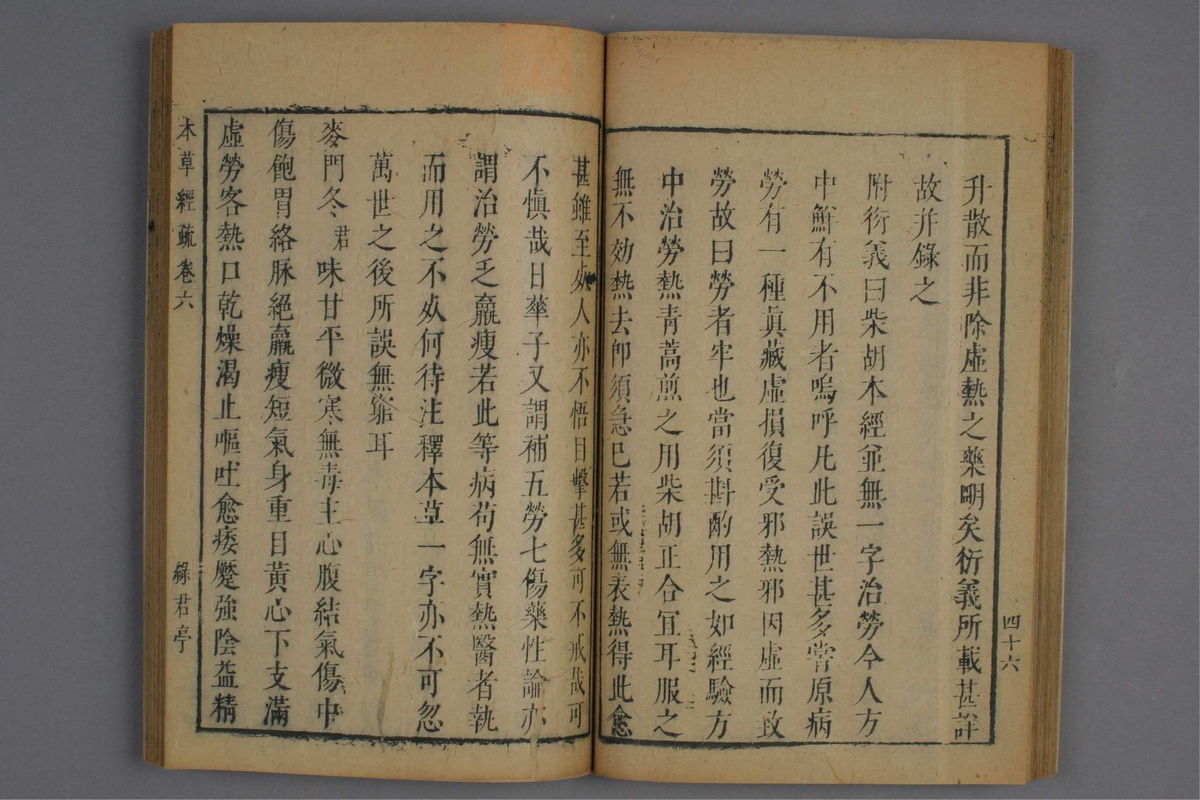 四十六
升散而非除虛熱之藥明矣衍義所載甚詳
故幷錄之
附衍義曰柴胡本經並無一字治勞今人方
中鮮有不用者嗚呼凡此誤世甚多嘗原病
勞有一種眞藏虛損復受邪熱邪因虛而致
勞故曰勞者牢也當須斟酌用之如經驗方
中治勞熱青蒿煎之用柴胡正合宜耳服之
無不効熱去卽須急已若或無表熱得此愈
甚雖至死人亦不悟目擊甚多可不戒哉可
不愼哉日華子又謂補五勞七傷藥性論亦
謂治勞乏羸瘦若此等病苟無實熱醫者執
而用之不死何待注釋本草一字亦不可忽
萬世之後所誤無窮耳
麥門冬君味甘平微寒無毒主心腹結氣傷中
傷飽胃絡脉絕羸瘦短氣身重目黃心下支滿
虛勞客熱口乾燥渴止嘔吐愈痿蹷強陰益精
本草經疏 卷六 綠君亭